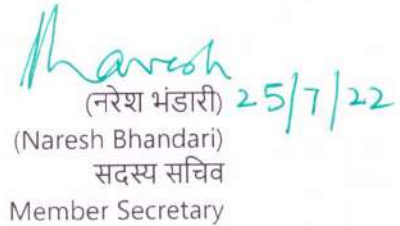 Naresh
(नरेश भंडारी) 25/7/22
(Naresh Bhandari)
सदस्य सचिव
Member Secretary